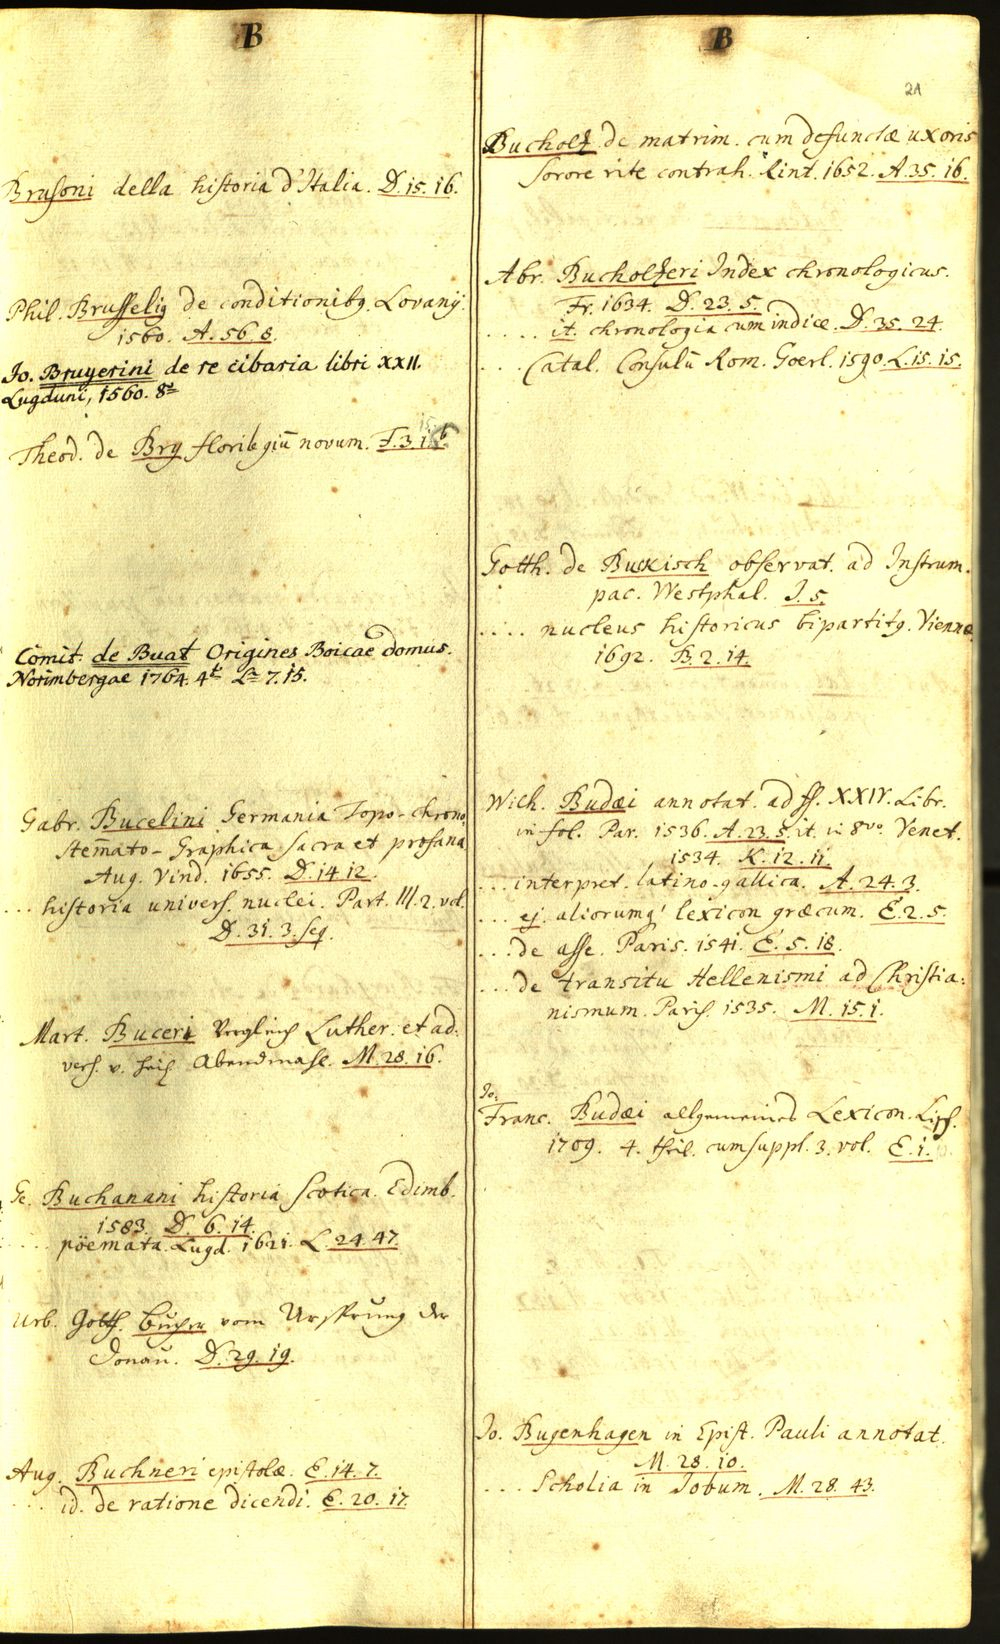 B
Brusoni della historia d'Italia. D. 15. 16.
Phil. Brusselig de conditionibg. Lovanÿ.
1560. A. 56. 8.
Jo. Bruyerini de re cibaria libri XXII.
Lugduni, 1560. 8º
Theod. de Bry florilegiū novum. F. 3.
Comit. de Buat Origines Boicae domus.
Norimbergae 1764. 4t L. 7. 15.
Gabr. Bucelini Germania Topo-Chrono
Stem̄ato-Graphica sacra et profana
Aug. Vind. 1655. D. 14 12.
... historia univers. nuclei. Part. III. 2. vol.
D. 31. 3. seq.
Mart. Buceri Vergleich Luther. et ad:
vers. v. heil. Abendmahl. M. 28. 16.
Ge. Buchanani historia scotica. Edimb.
1583. D. 6. 14.
.... pöemata. Lugd. 1621. L. 24. 47.
Urb. Gotth. Bucher vom Ursprung der
Donau. D. 29. 19.
Aug. Buchneri epistolæ. E. 14. 7.
... id. de ratione dicendi. E. 20. 17.
B
21
Bucholz de matrim. cum defunctæ uxoris
sorore rite contrah. Rint. 1652. A. 35. 16.
Abr. Bucholzeri Index chronologicus.
Fr. 1634. D. 23. 5.
.... it. chronologia cum indice. D. 35. 24.
... Catal. Consulū Rom. Goerl. 1590. L. 15. 15.
Gotth. de Buckisch observat. ad Instrum.
pac. Westphal. J. 5.
.... nucleus historicus bipartitg. Viennæ
1692. B. 2. 14.
Wilh. Budæi annotat. ad ff. XXIV. Libr.
in fol. Par. 1536. A. 23. 5. it. in 8vo. Venet.
1534. K. 12. 11.
... interpret. latino-gallica. A. 24. 3.
... ej. aliorumq' lexicon græcum. E. 2. 5.
... de asse. Paris. 1541. E. 5. 18.
... de transitu Hellenismi ad Christia:
nismum. Paris. 1535. M. 15. 1.
Jo.
Franc. Budæi allgemeines Lexicon. Lips.
1709. 4. theil. cum suppl. 3. vol. E. 1.
Jo. Bugenhagen in Epist. Pauli annotat.
M. 28. 10.
... Scholia in Jobum. M. 28. 43.